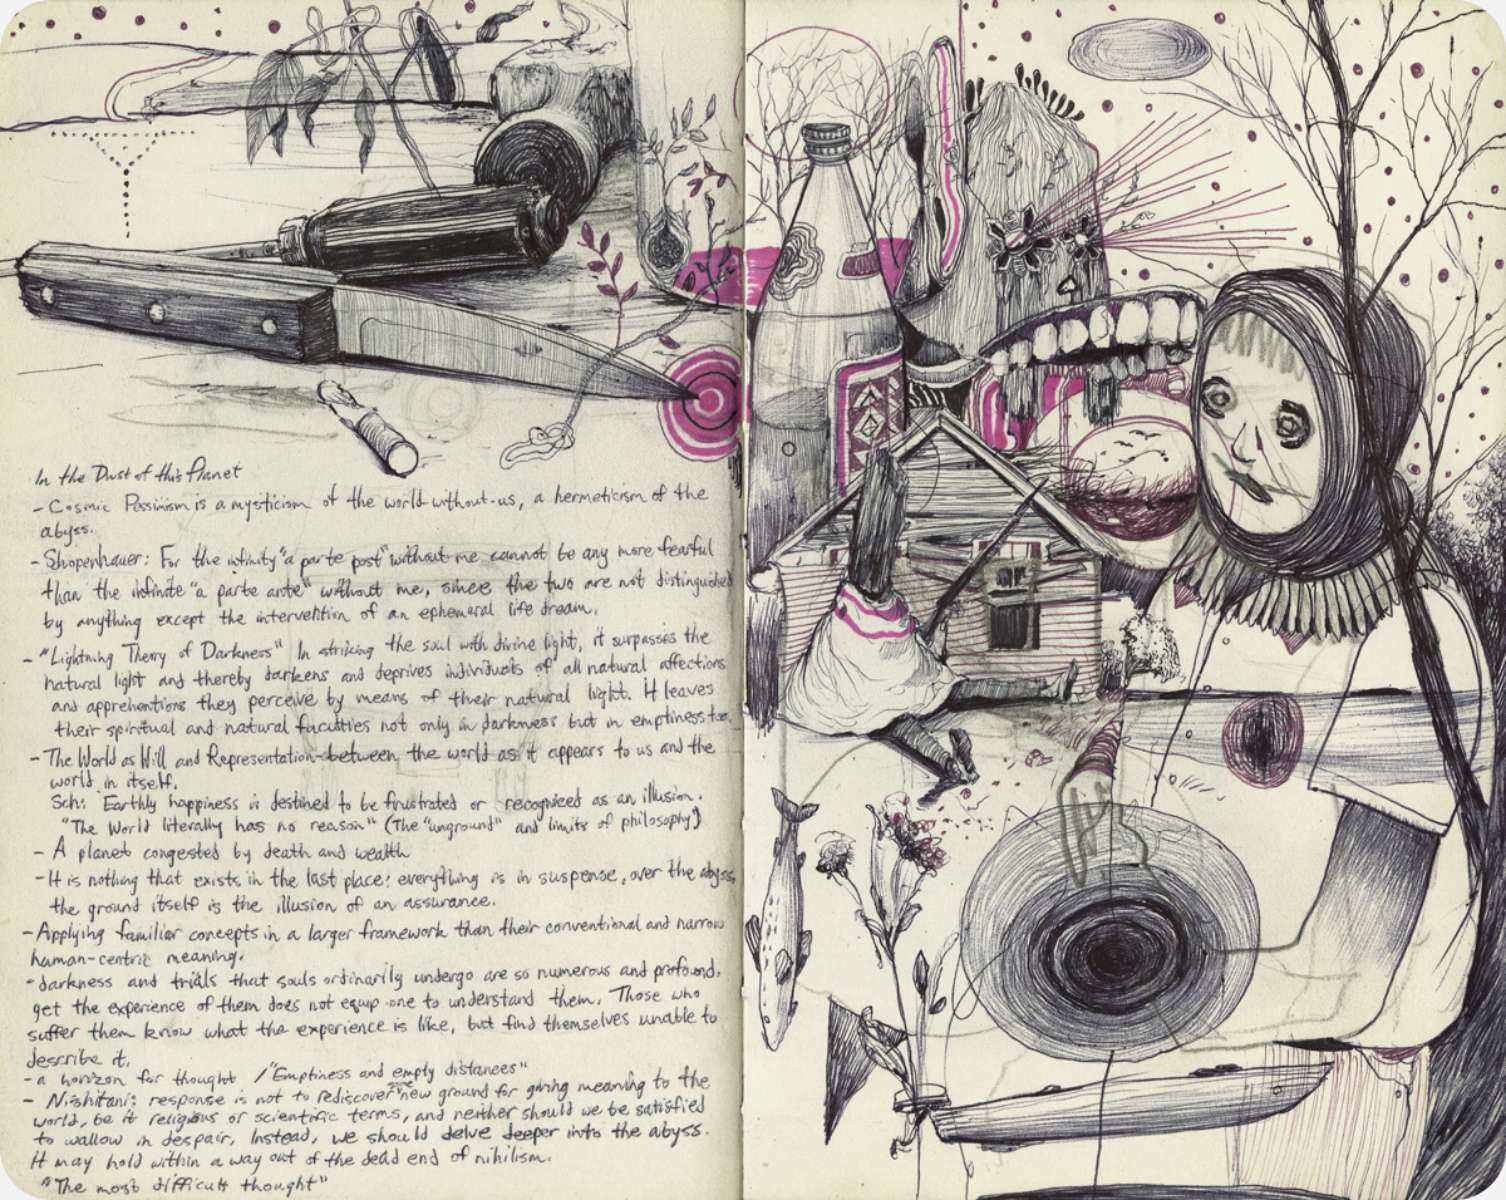 In the Dust of this Planet
- Cosmic Pessimism is a mysticism of the world-without-us, a hermeticism of the
abyss.
- Shopenhauer: For the infinity "a parte post" without me cannot be any more fearful
than the infinite "a parte ante" without me, since the two are not distinguished
by anything except the intervention of an ephemeral life dream.
- "Lightning Theory of Darkness" In striking the soul with divine light, it surpasses the
natural light and thereby darkens and deprives individuals of all natural affections
and apprehentions they perceive by means of their natural light. It leaves
their spiritual and natural faculties not only in darkness but in emptiness too.
- The World as Will and Representation - between the world as it appears to us and the
world in itself.
Sch: Earthly happiness is destined to be frustrated or recognized as an illusion.
"The World literally has no reason" (The "unground" and limits of philosophy)
- A planet congested by death and wealth
- It is nothing that exists in the last place; everything is in suspense, over the abyss,
the ground itself is the illusion of an assurance.
- Applying familier concepts in a larger framework than their conventional and narrow
human-centric meaning.
- darkness and trials that souls ordinarily undergo are so numerous and profound,
yet the experience of them does not equip one to understand them. Those who
suffer them know what the experience is like, but find themselves unable to
describe it.
- a horizon for thought / "Emptiness and empty distances"
- Nishitani: response is not to rediscover some new ground for giving meaning to the
world, be it religious or scientific terms, and neither should we be satisfied
to wallow in despair, Instead, we should delve deeper into the abyss.
It may hold within a way out of the dead end of nihilism.
"The most difficult thought"